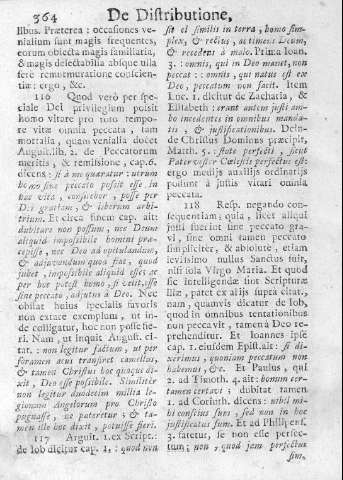 364 De Distributione,
libus. Præterea: occasiones ve-
nialium sunt magis frequentes,
eorum objecta magis familiaria,
& magis delectabilia absque ulla
fere remurmuratione conscien-
tiæ: ergo, &c.
116 Quod verò per spe-
ciale Dei privilegium possit
homo vitare pro toto tempo-
re vitæ omnia peccata, tam
mortalia, quam venialia docet
August. lib. 2. de Peccatorum
meritis, & remissione, cap. 6.
dicens: si à me quæratur: utrum
homo sine peccato possit esse in
hac vita, confitebor, posse per
Dei gratiam, & liberum arbi-
trium. Et circa finem cap. ait:
dubitare non possum, nec Deum
aliquid impossibile homini præ-
cepisse, nec Deo ad opitulandum,
& adjuvandum quoa fiat, quod
jubet, impossibile aliquid esse: ac
per hoc potest homo, si velit, esse
sine peccato, adjutus à Deo. Nec
obstat hujus specialis favoris
non extare exemplum, ut in-
de colligatur, hoc non posse fie-
ri. Nam, ut inquit August. ci-
tat.: non legitur factum, ut per
foramen acus transiret camellus,
& tamen Christus hoc quoque di-
xit, Deo esse possibile. Similiter
non legitur duodecim millia le-
gionum Angelorum pro Christo
pugnasse, ne pateretur; & ta-
men ille hoc dixit, potuisse fieri.
117 Arguit. 1. ex Script.:
de Iob dicitur cap. 1,: quod non
sit ei similis in terra, homo sim-
plex, & rectus, ac timens Deum,
& recedens à malo. Prima Ioan.
3.: omnis, qui in Deo manet, non
peccat: omnis, qui natus est ex
Deo, peccatum non facit. Item
Luc. 1. dicitur de Zacharia, &
Elisabeth: erant autem justi am-
bo incedentes in omnibus manda-
tis, & justificationibus. Dein-
de Christus Dominus præcipit,
Matth. 5.: estote perfecti, sicut
Pater vester Cœlestis perfectus est:
ergo mediis auxiliis ordinariis
possunt à justis vitari omnia
peccata.
118 Resp. negando con-
sequentiam; quia, licet aliqui
justi fuerint sine peccato gra-
vi, sine omni tamen peccato
simpliciter, & absolute, etiam
levissimo nullus Sanctus fuit,
nisi sola Virgo Maria. Et quod
sic intelligendæ sint Scripturæ
illæ, patet ex aliis supra citat.,
nam, quamvis dicatur de Iob,
quod in omnibus tentationibus
non peccavit, tamen à Deo re-
prehenditur. Et Ioannes ipse
cap. 1. ejusdem Epist. ait: si di-
xerimus, quoniam peccatum non
habemus, &c. Et Paulus, qui
2. ad Timoth. 4. ait: bonum cer-
tamen certavi; dubitat tamen
1. ad Corinth. dicens: nihil mi-
hi conscius sum, sed non in hoc
justificatus sum. Et ad Philipens.
3. fatetur, se non esse perfec-
tum; non, quod jam perfectus
sim,